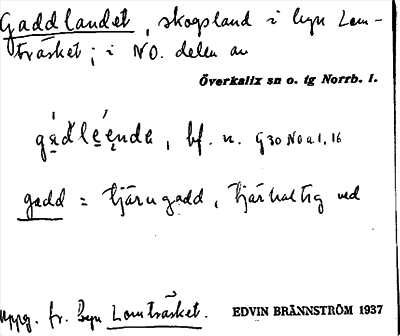 Gaddlandet, skogsland i byn Lom-
träsket; i NO. delen av
Överkalix sn o. tg Norrb. l.
bf. n. G30 No a 1, 16
gadd = tjärugadd, tjärhaltig ved
Uppg. fr. byn Lomträsket.
EDVIN BRÄNNSTRÖM 1937